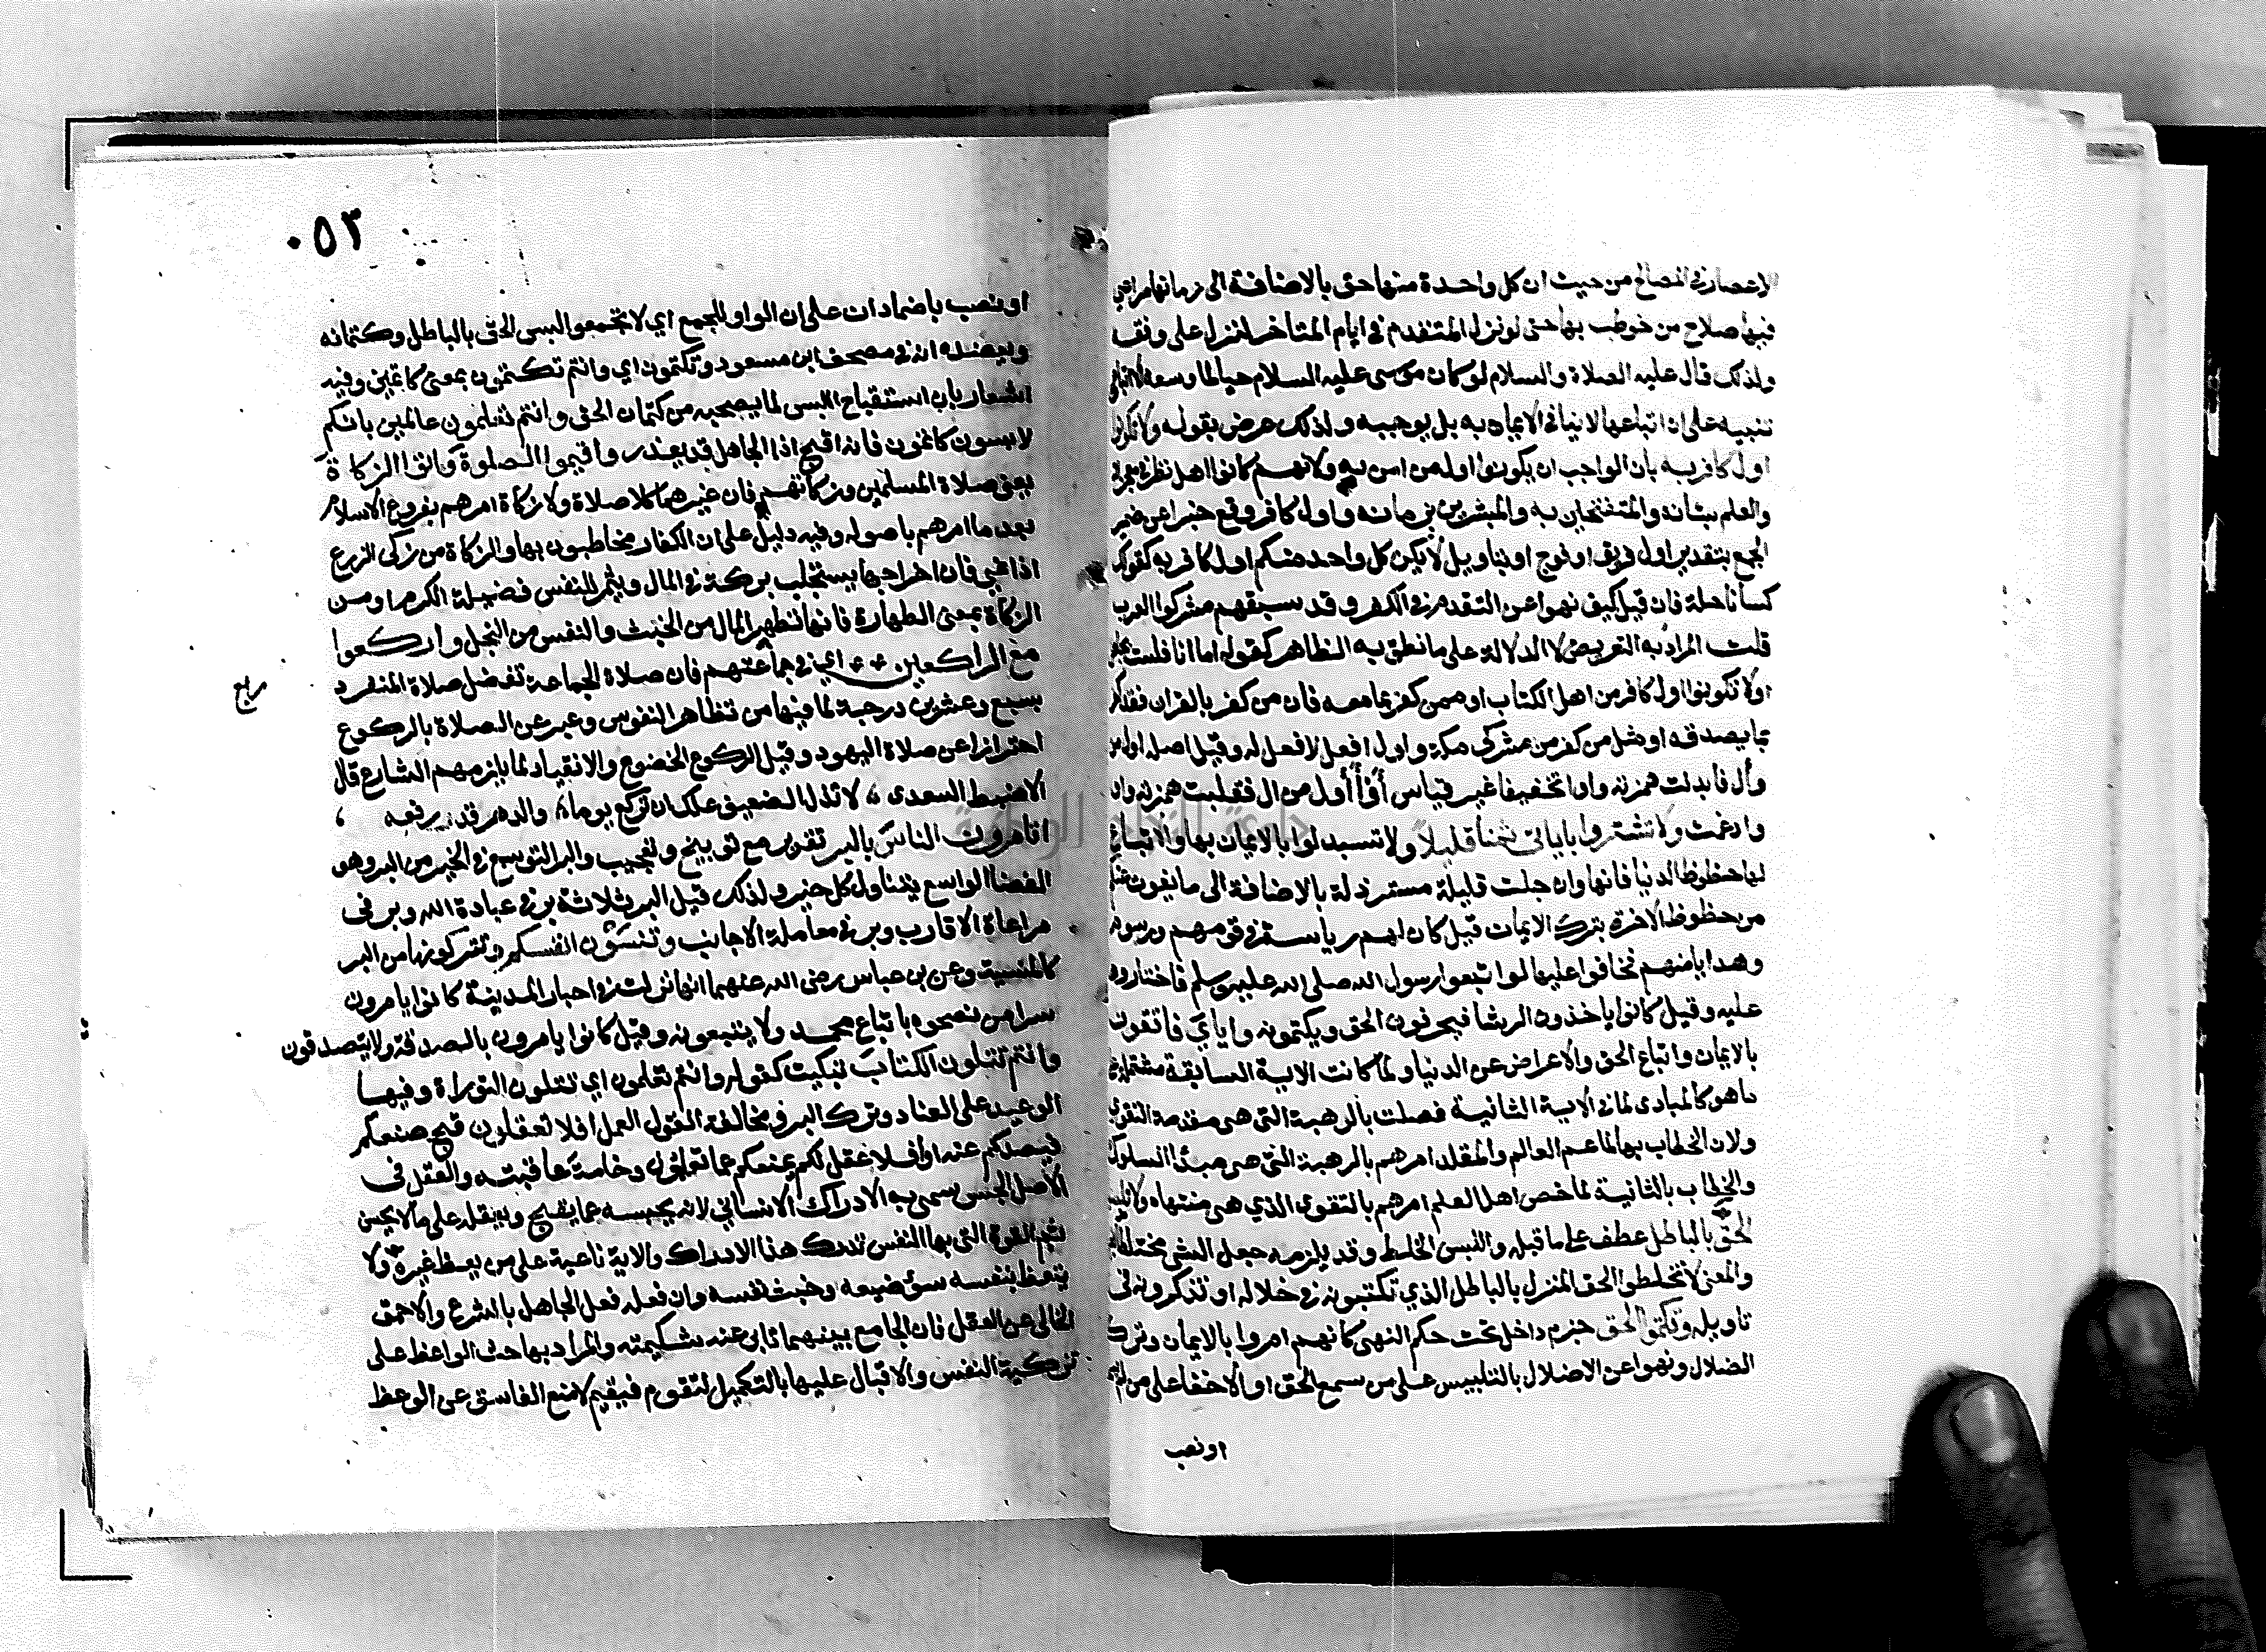 الاعصار في المصالح من حيث ان كل واحدة منها حق بالاضافة الى زمانها مراعى
فيها صلاح من خوطب بها حتى لو نزل المتقدم في ايام المتاخر لنزل على وفقه
ولذلك قال عليه الصلاة والسلام لو كان موسى عليه السلام حيا لما وسعه الا اتباعي
تنبيه على ان اتباعها لا ينافي الايمان به بل يوجبه ولذلك عرض بقوله ولا تكونوا
اول كافر به بان الواجب ان يكونوا اول من امن به ولانهم كانوا اهل نظر في معجزاته
والعلم بشانه والمستفتحين به والمبشرين بزمانه واول كافر وقع خبرا عن ضمير
الجمع بتقدير اول فريق او فوج او بتاويل لا يكن كل واحد منكم اول كافر به كقولك
كسانا حلة فان قيل كيف نهوا عن التقدم في الكفر وقد سبقهم مشركوا العرب
قلت المراد به التعريض لا الدلالة على ما نطق به الظاهر كقولك اما انا فلست بجاهل
او لا تكونوا اول كافر من اهل الكتاب او ممن كفر بما معه فان من كفر بالقران فقد كفر
بما يصدقه او مثل من كفر من مشركي مكة واول افعل لا فعل له وقيل اصله اوال من
وأل فابدلت همزته واوا تخفيفا غير قياس أو أأول من ال فقلبت همزته واوا
وادغمت ولا تشتروا باياتي ثمنا قليلا ولا تستبدلوا بالايمان بها والاتباع
لها حظوظ الدنيا فانها وان جلت قليلة مسترذلة بالاضافة الى ما يفوت عنكم
من حظوظ الاخرة بترك الايمان قيل كان لهم رياسة في قومهم ورسوم
وهدايا منهم فخافوا عليها لو اتبعوا رسول الله صلى الله عليه وسلم فاختاروها
عليه وقيل كانوا ياخذون الرشا فيحرفون الحق ويكتمونه واياي فاتقون
بالايمان واتباع الحق والاعراض عن الدنيا ولما كانت الاية السابقة مشتملة على
ما هو كالمبادى لما في الاية الثانية فصلت بالرهبة التي هى مقدمة التقوى
ولان الخطاب بها لما عم العالم والمقلد امرهم بالرهبة التي هى مبدأ السلوك
والخطاب بالثانية لما خص اهل العلم امرهم بالتقوى الذي هى منتهاه ولا تلبسوا
الحق بالباطل عطف على ما قبله واللبس الخلط وقد يلزمه جعل الشي مختلطا
والمعنى لا تخلطوا الحق المنزل بالباطل الذي تكتبونه في خلاله او تذكرونه في
تاويله وتكتموا الحق جزم داخل تحت حكم النهى كانهم امروا بالايمان وترك
الضلال ونهوا عن الاضلال بالتلبيس على من سمع الحق او الاخفا على من لم
او نصب
٠٥٣
او نصب باضمار ان على ان الواو للجمع اي لا تجمعوا لبس الحق بالباطل وكتمانه
ويعضده انه في مصحف ابن مسعود وتكتمون اي وانتم تكتمون بمعنى كاتمين وفيه
اشعار بان استقباح اللبس لما يصحبه من كتمان الحق وانتم تعلمون عالمين بانكم
لابسون كاتمون فانه اقبح اذ الجاهل قد يعذر واقيموا الصلوة واتوا الزكاة
يعنى صلاة المسلمين وزكاتهم فان غيرهما كلا صلاة ولا زكاة امرهم بفروع الاسلام
بعد ما امرهم باصوله وفيه دليل على ان الكفار مخاطبون بها والزكاة من زكى الزرع
اذا نمى فان اخراجها يستجلب بركة في المال ويثمر للنفس فضيلة الكرم او من
الزكاة بمعنى الطهارة فانها تطهر المال من الخبث والنفس من البخل واركعوا
مع الراكعين اي في جماعتهم فان صلاة الجماعة تفضل صلاة المنفرد
بسبع وعشرين درجة لما فيها من تظاهر النفوس وعبر عن الصلاة بالركوع
احترازا عن صلاة اليهود وقيل الركوع الخضوع والانقياد لما يلزمهم الشارع قال
الاضبط السعدى لا تذل الضعيف علك ان تركع يوما والدهر قد رفعه
اتامرون الناس بالبر تقرير مع توبيخ وتعجيب والبر التوسع في الخير من البر وهو
الفضا الواسع يتناول كل خير ولذلك قيل البر ثلاثة بر في عبادة الله وبر في
مراعاة الاقارب وبر في معاملة الاجانب وتنسون انفسكم وتتركونها من البر
كالمنسية وعن بن عباس رضى الله عنهما انها نزلت في احبار المدينة كانوا يامرون
سرا من نصحوه باتباع محمد ولا يتبعونه وقيل كانوا يامرون بالصدقة ولا يتصدقون
وانتم تتلون الكتاب تبكيت كقوله وانتم تعلمون اي تتلون التوراة وفيها
الوعيد على العناد وترك البر ومخالفة القول العمل افلا تعقلون قبح صنعكم
فيصدكم عنه او أفلا عقل لكم يمنعكم عما تعلمون وخامة عاقبته والعقل في
الاصل الحبس سمي به الادراك الانساني لانه يحبسه عما يقبح ويعقله على ما لا يحسن
ثم القوة التي بها النفس تدرك هذا الادراك والاية ناعية على من يعظ غيره ولا
يتعظ بنفسه سوء صنيعه وخبث نفسه وان فعله فعل الجاهل بالشرع والاحمق
الخالي عن العقل فان الجامع بينهما تابى عنه شكيمته والمراد بها حث الواعظ على
تزكية النفس والاقبال عليها بالتكميل لتقوم فيقيم لا منع الفاسق عن الوعظ